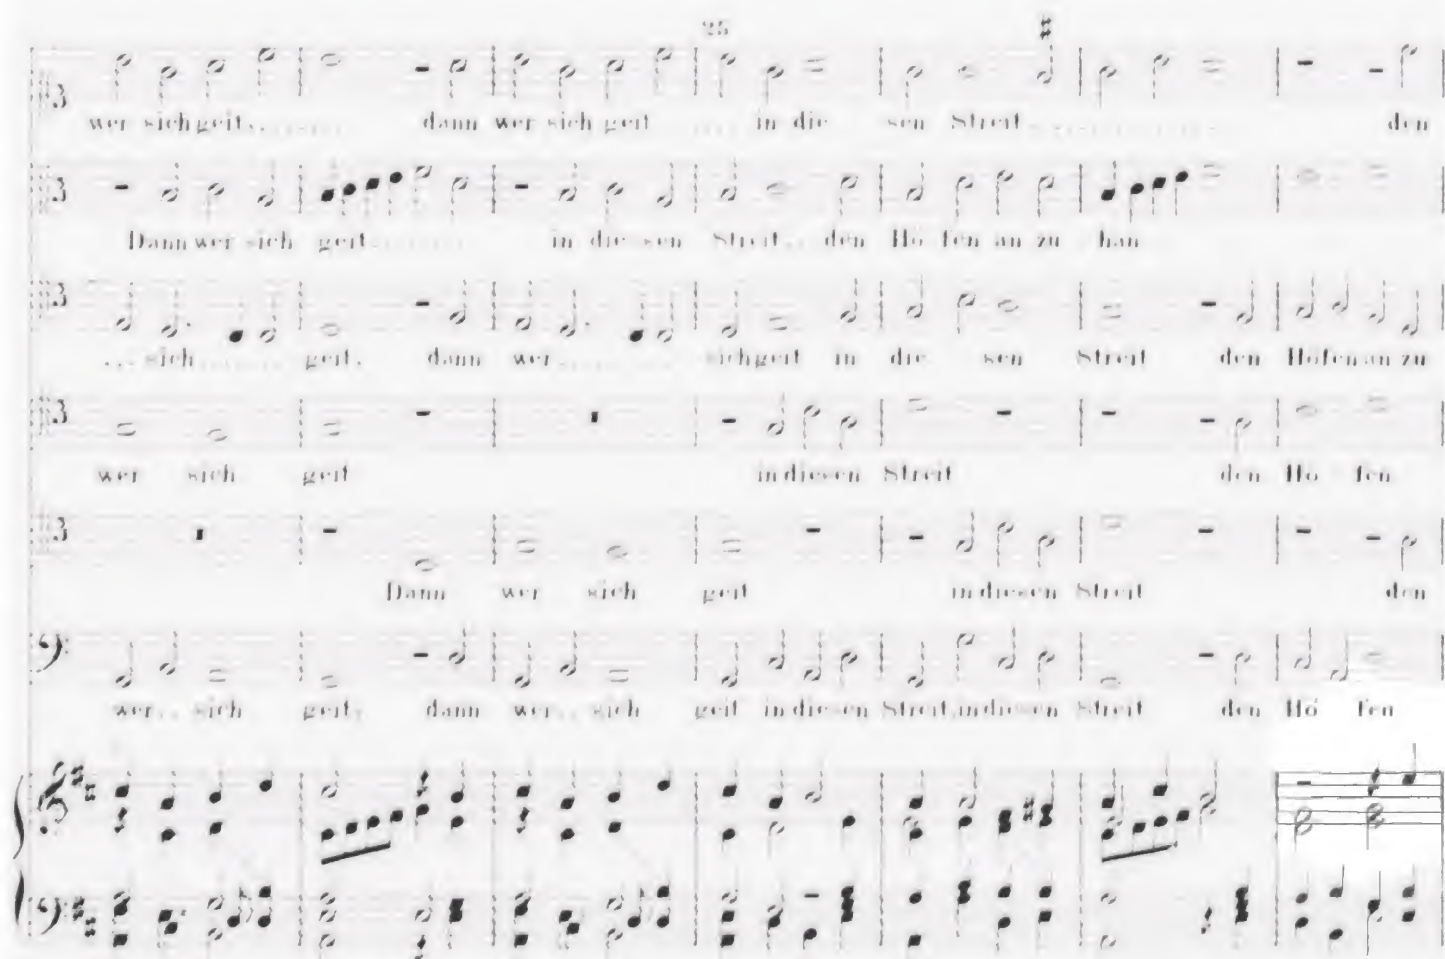 25
wer sich geit........ dann wer sich geit .... in die sen Streit................ den
Dann wer sich geit......... in die sen Streit.. den Hö fen an zu han
... sich........ geit, dann wer........ sich geit in die sen Streit den Höfen an zu
wer sich geit in diesen Streit den Hö fen
Dann wer sich geit in diesen Streit den
wer.. sich geit, dann wer.. sich geit in diesen Streit, in diesen Streit den Hö fen